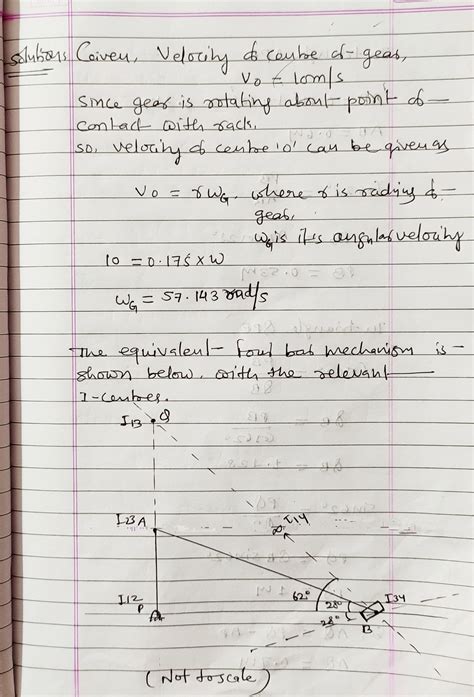 solutions Given, Velocity of centre of gear,
V₀ = 10m/s
Since gear is rotating about point of
contact with rack.
so, velocity of centre 'o' can be given as
V₀ = rωG, where r is radius of
gear,
ωG is its angular velocity
10 = 0.175 × ω
ωG = 57.143 rad/s
The equivalent four bar mechanism is
shown below, with the relevant
I-centres.
I13 Q
I23 A
∞ I14
I12
P
62°
28°
28°
I34
B
(Not to scale)